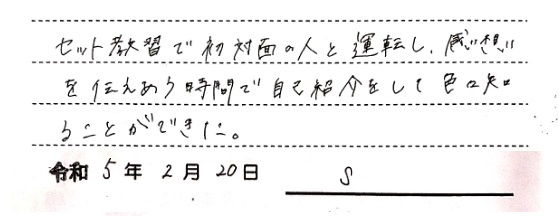 セット教習で初対面の人と運転し、感じ想い
を伝えあう時間で自己紹介をして色々知
ることができた。
令和 5 年 2 月 20 日 S